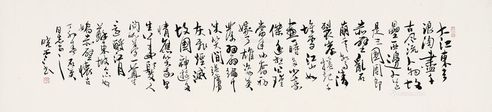 大江東去
浪淘盡千
古風流人物故
壘西邊人道
是三國周郎
赤壁亂石
崩雲驚濤
裂岸捲起千
堆雪江山如
畫一時多少豪
傑遙想公瑾
當年小喬初
嫁了雄姿英
發羽扇綸巾
談笑間檣櫓
灰飛煙滅
故國神遊多
情應笑我早
生華髮人
間如夢一尊
還酹江月
蘇東坡念奴
嬌赤壁懷古